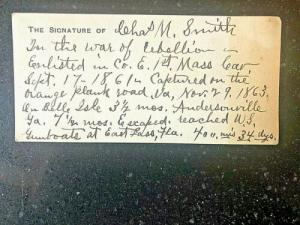 THE SIGNATURE OF Chas M. Smith
In the war of rebellion
Enlisted in Co. E. 1st Mass Cav
Sept. 17 - 1861 Captured on the
orange plank road, Va, Nov. 29, 1863,
on Belle Isle 3½ mos. Andersonville
Ga. 7½ mos. Escaped. reached U.S.
Gunboats at East Pass, Fla. 400 mis 34 dys.